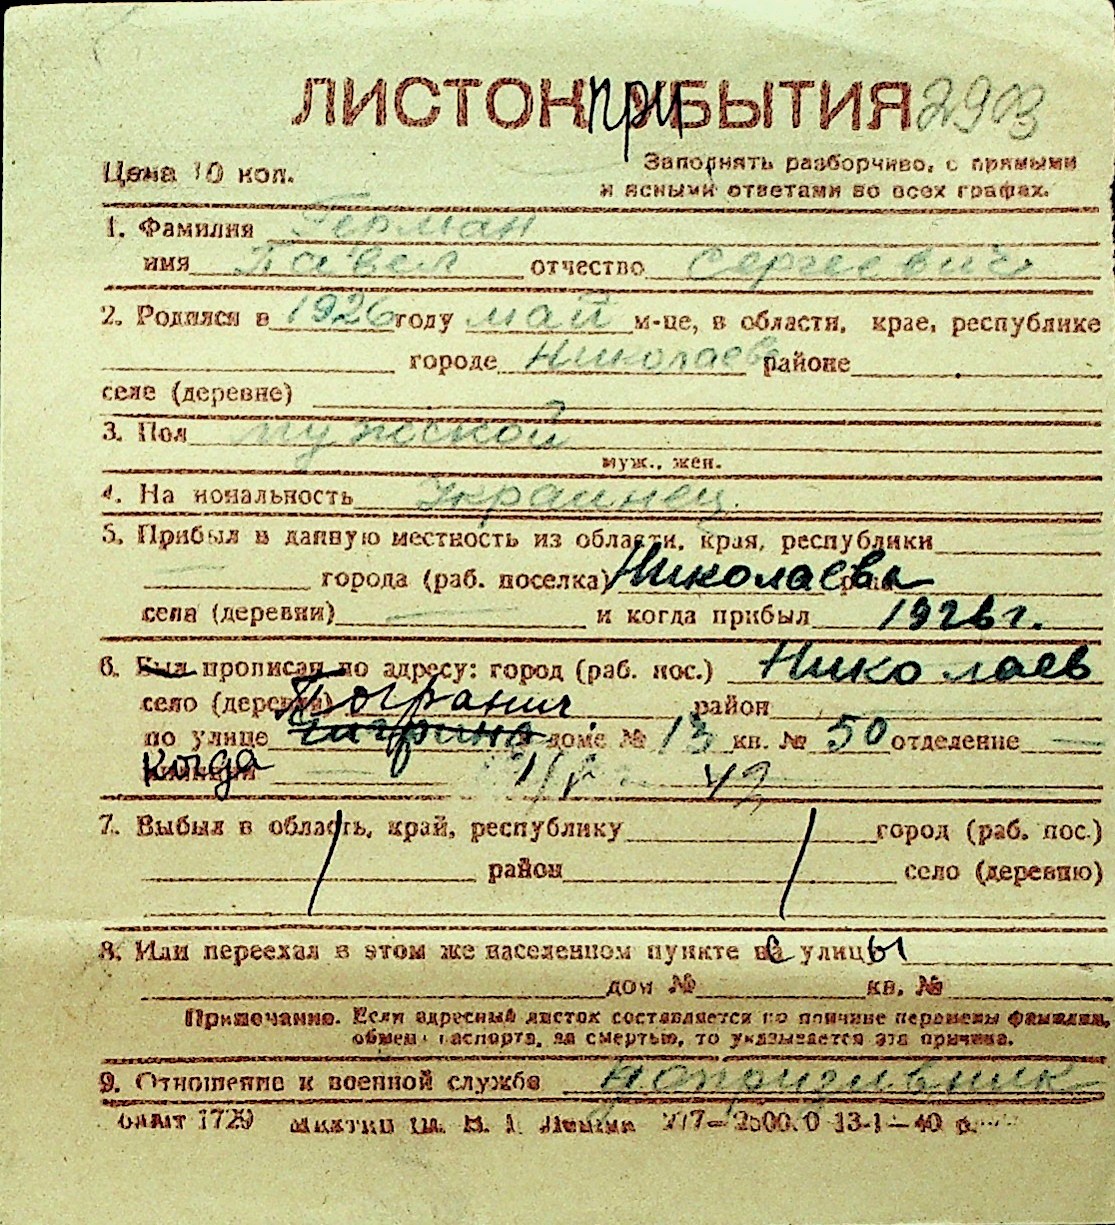 ЛИСТОК приБЫТИЯ 2903
Цена 10 коп.
Заполнять разборчиво, с прямыми
и ясными ответами во всех графах.
1. Фамилия Герман
имя Павел отчество Сергеевич
2. Родился в 1926 году май м-це, в области, крае, республике
городе Николаеве районе
селе (деревне)
3. Пол мужской
муж., жен.
4. Национальность Украинец.
5. Прибыл в данную местность из области, края, республики
города (раб. поселка) Николаева
села (деревни) и когда прибыл 1926 г.
6. Был прописан по адресу: город (раб. пос.) Николаев
село (деревня) Погранич район
по улице дом № 13 кв. № 50 отделение
когда 43
7. Выбыл в область, край, республику город (раб. пос.)
район село (деревню)
8. Или переехал в этом же населенном пункте с улицы
дом № кв. №
Примечание. Если адресный листок составляется по причине перемены фамилии,
обмен паспорта, за смертью, то указывается эта причина.
9. Отношение к военной службе допризивник
1729 13-1-40 р.